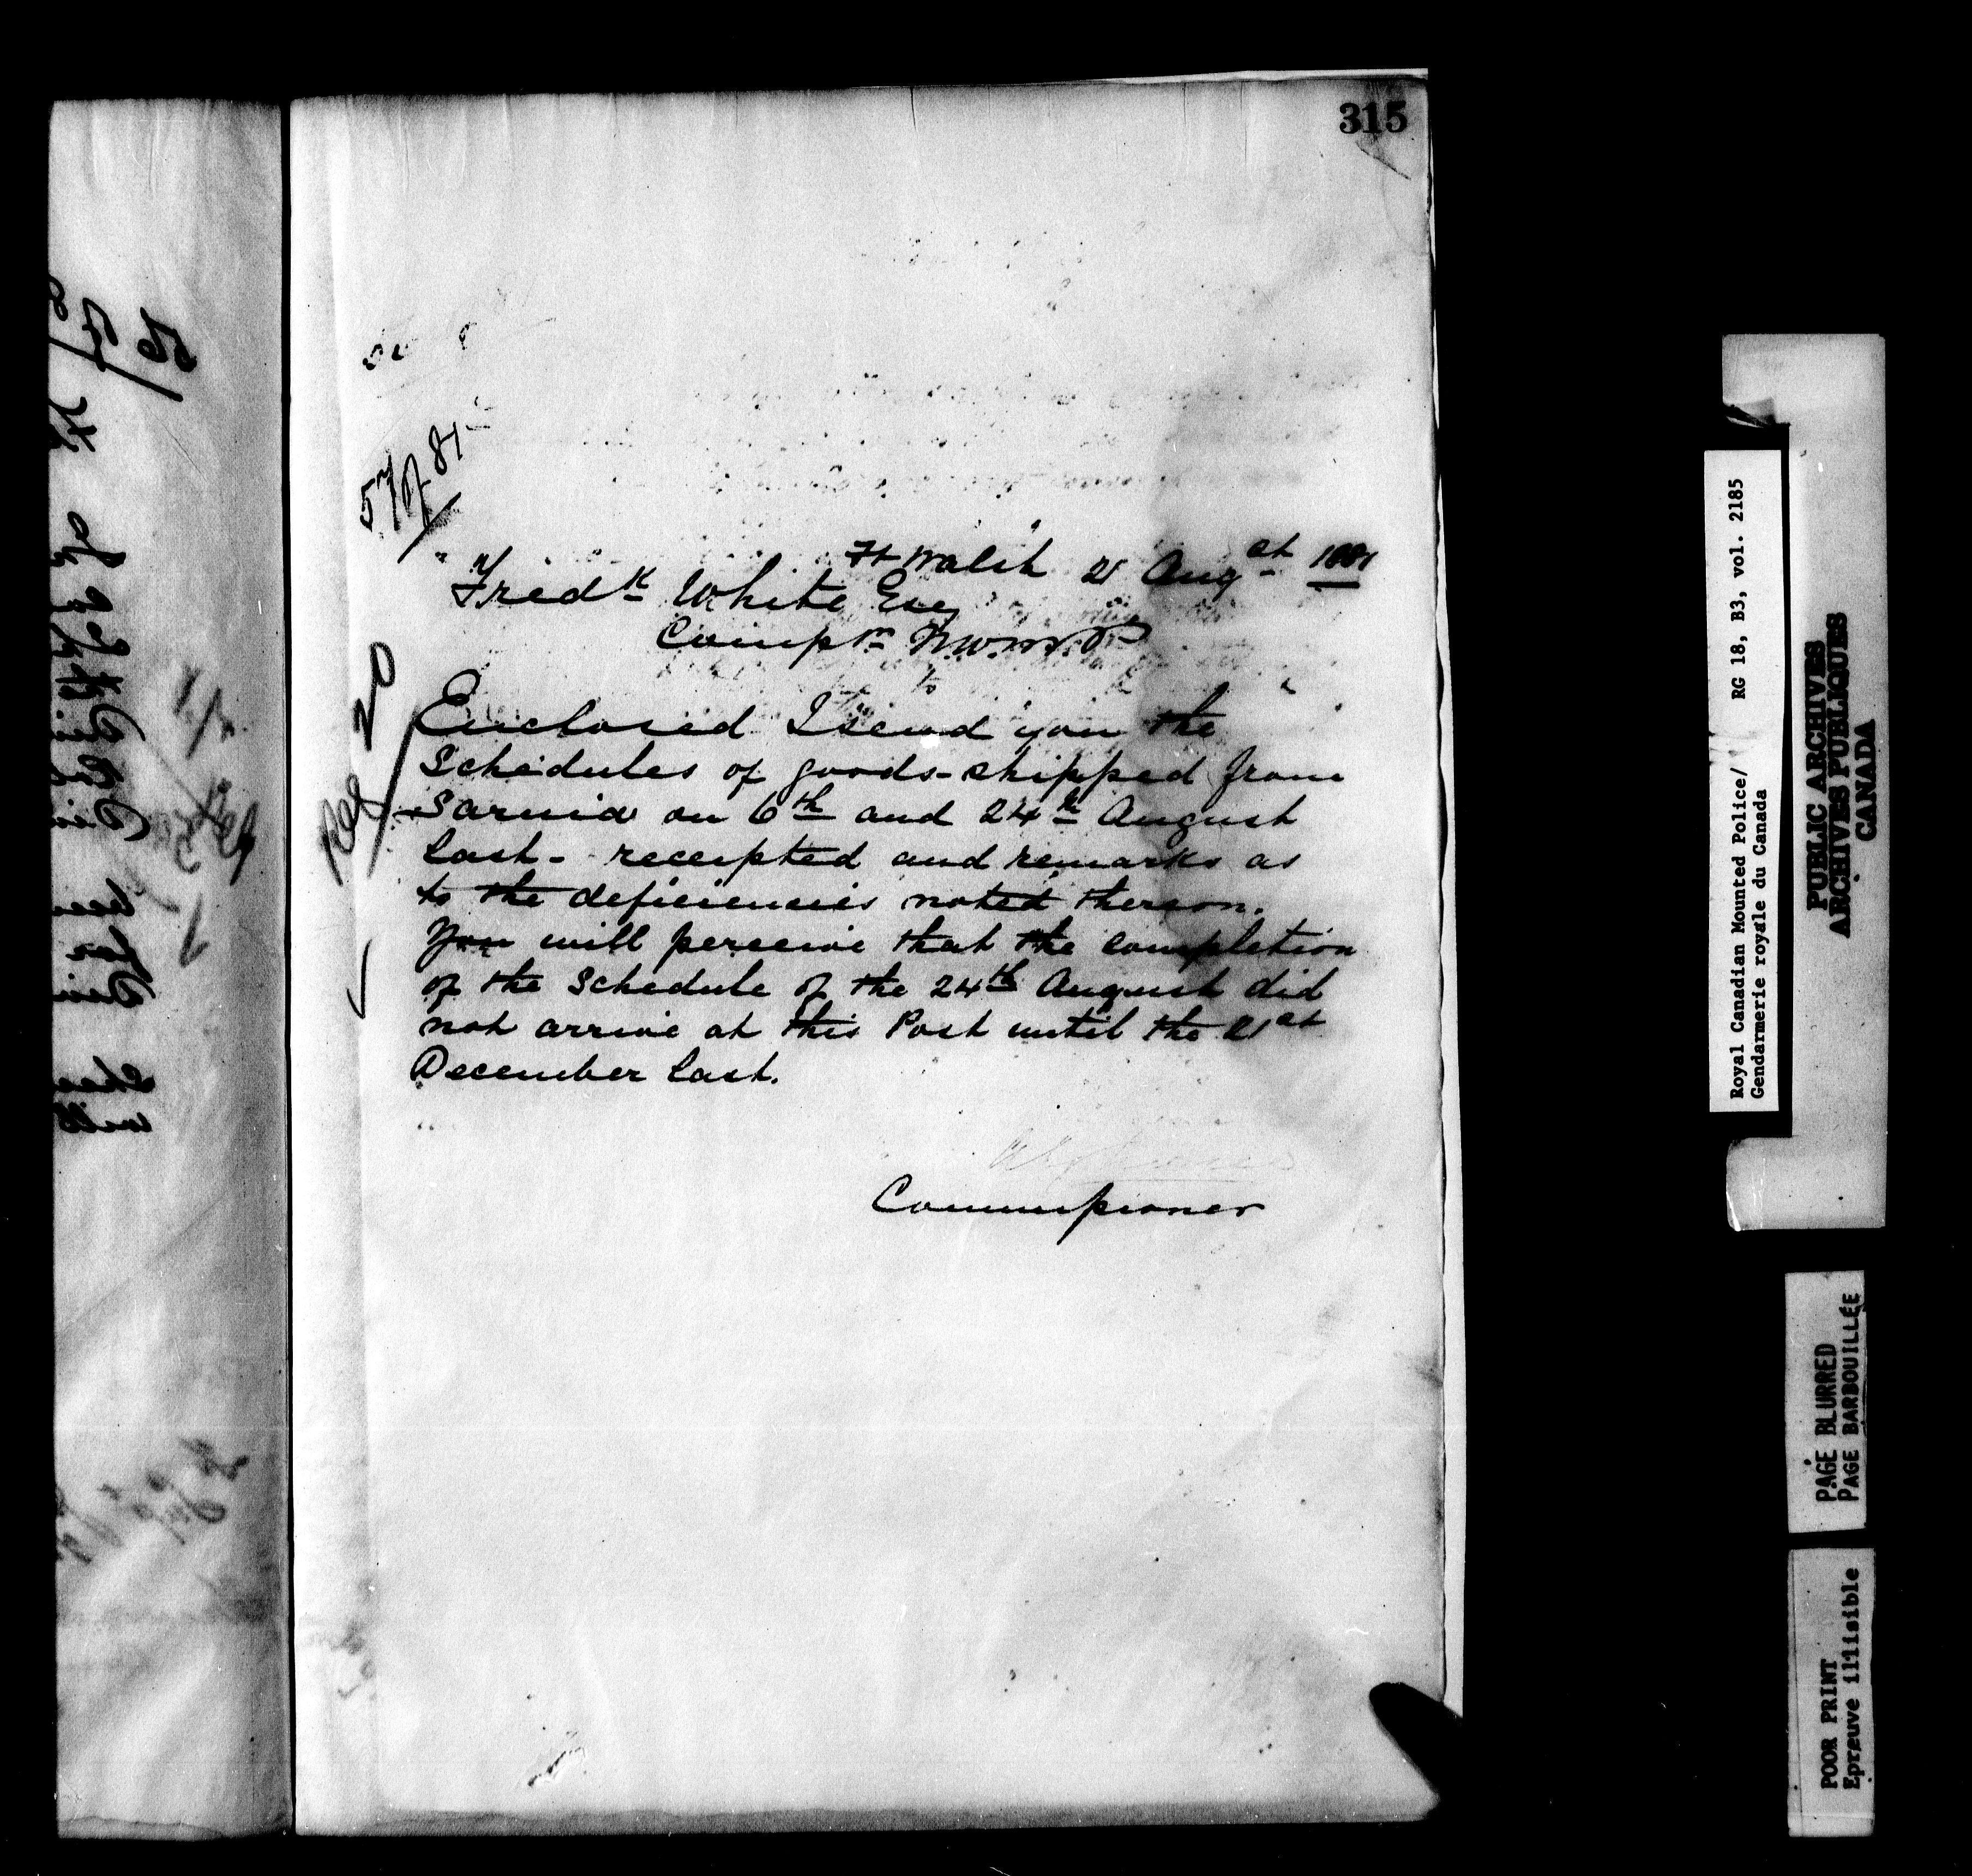 315
57 of 81
Ft Walsh 21 Augst 1881
Fredk White Esq
Comptr N.W.M.P
Reg 20
Enclosed I send you the
Schedules of goods - shipped from
Sarnia on 6th and 24th August
last - receipted and remarks as
to the deficiencies noted thereon.
You will perceive that the completion
of the Schedule of the 24th August did
not arrive at this Post until the 21st
December last.
Commissioner
Royal Canadian Mounted Police/ RG 18, B3, vol. 2185
Gendarmerie royale du Canada
PUBLIC ARCHIVES
ARCHIVES PUBLIQUES
CANADA
PAGE BLURRED
PAGE BARBOUILLÉE
POOR PRINT
Epreuve illisible